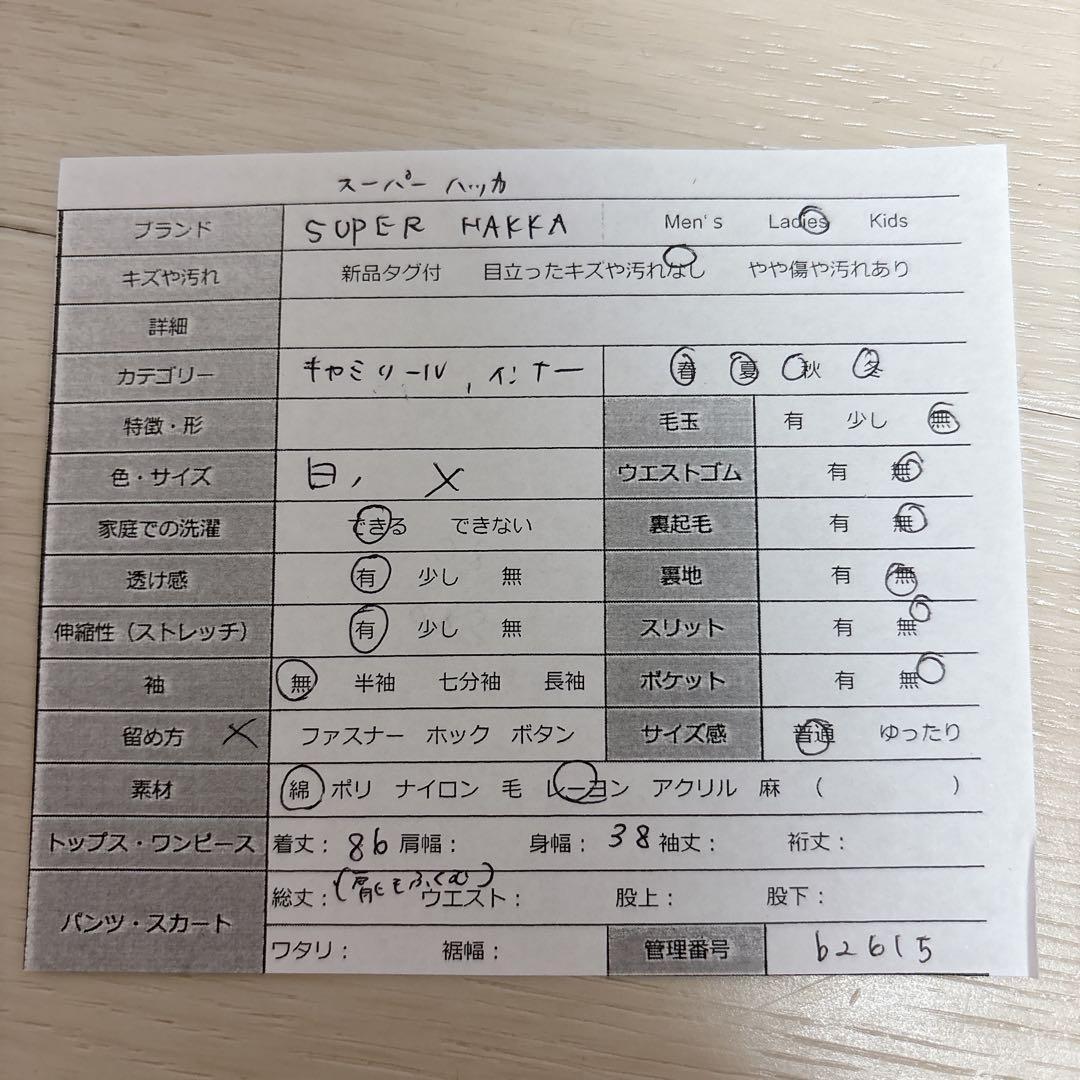 スーパー ハッカ
ブランド SUPER HAKKA Men's Ladies Kids
キズや汚れ 新品タグ付 目立ったキズや汚れなし やや傷や汚れあり
詳細
カテゴリー キャミソール, インナー 春 夏 秋 冬
特徴・形 毛玉 有 少し 無
色・サイズ 白, ウエストゴム 有 無
家庭での洗濯 できる できない 裏起毛 有 無
透け感 有 少し 無 裏地 有 無
伸縮性(ストレッチ) 有 少し 無 スリット 有 無
袖 無 半袖 七分袖 長袖 ポケット 有 無
留め方 × ファスナー ホック ボタン サイズ感 普通 ゆったり
素材 綿 ポリ ナイロン 毛 レーヨン アクリル 麻 ( )
トップス・ワンピース 着丈: 86 肩幅: 身幅: 38 袖丈: 裄丈:
パンツ・スカート 総丈: (肩ヒモふくむ) ウエスト: 股上: 股下:
ワタリ: 裾幅: 管理番号 b2615